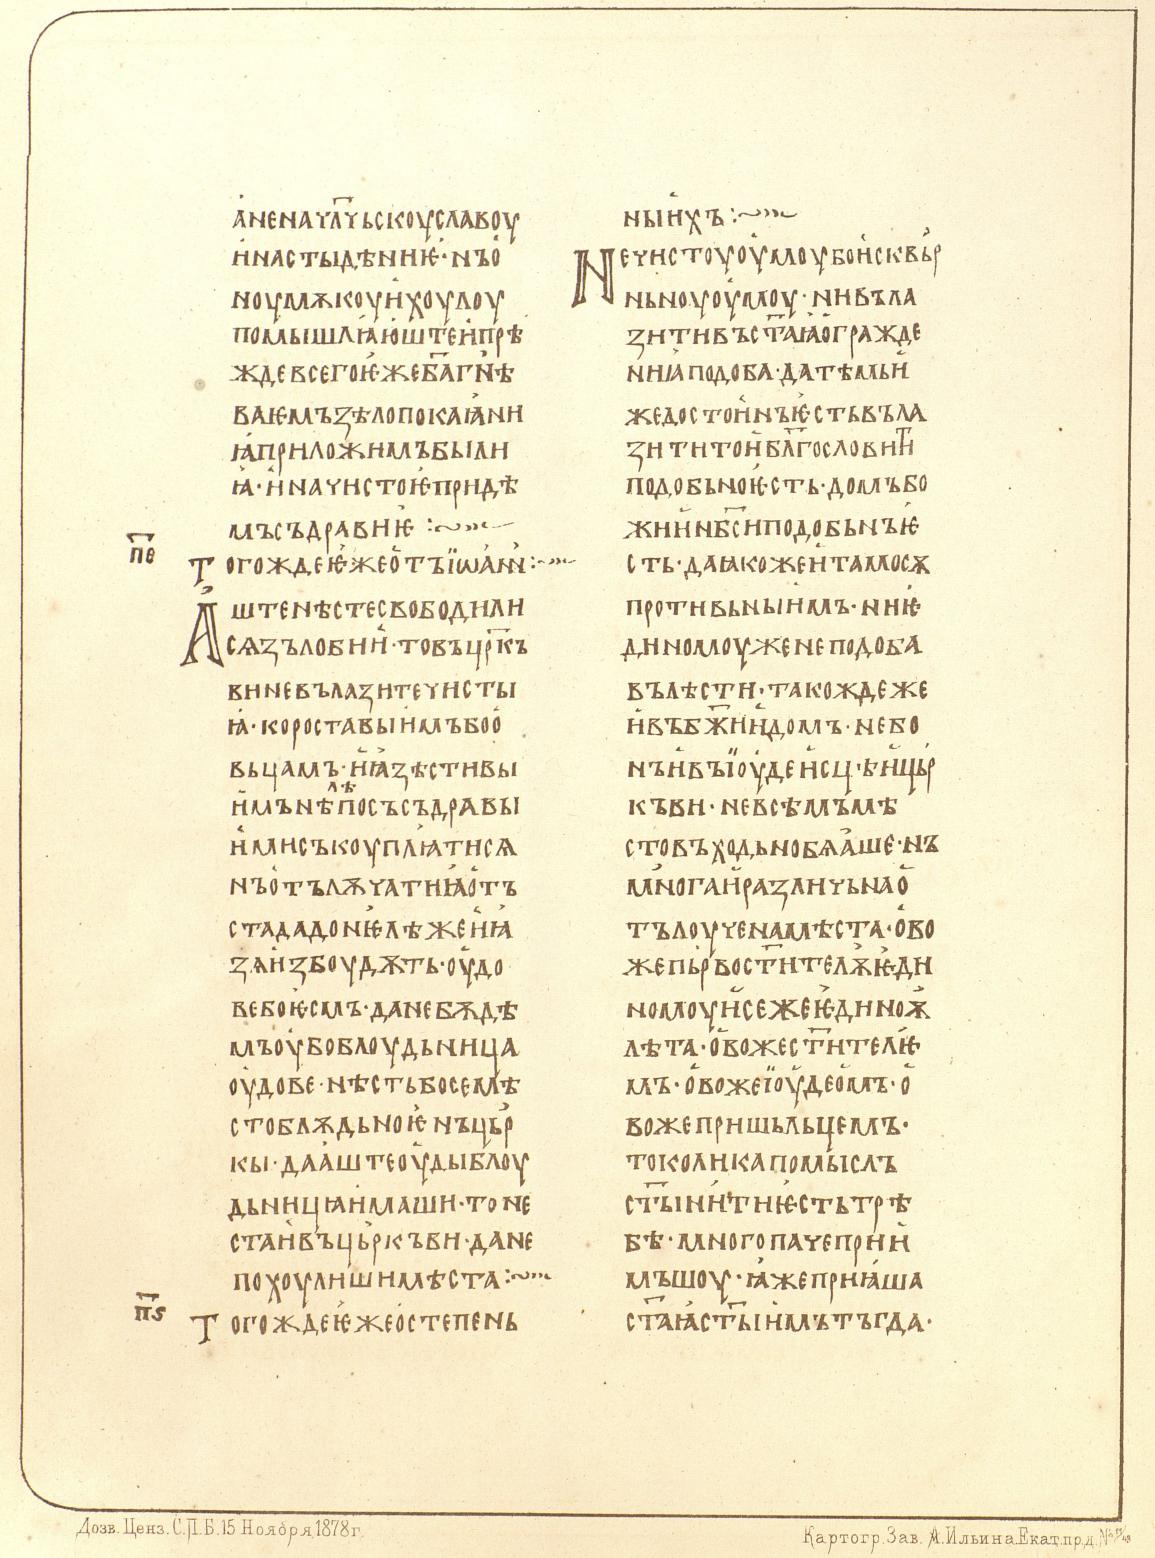 а҆ненаꙋл҃ѵьскоуславоу
и҆настыдѣнииѥ·нъо҆
ноумѫкоуи҆хоулоу
помышлꙗюштеи҆прѣ
ждевсегоѥ҆жеб҃лагн҆ѣ
ваѥмъꙁѣлопокаꙗ҆ни
ꙗ҆приложимъбыли
ꙗ҆·и҆начистоѥ҆придѣ
мъсъдравиѥ҆ :~
п҃е
тогождеѥ҆жео҆тъїѡа҆н҆:~
а҆штенѣстесвободили
сѧꙁълобии҆·товъцр҃къ
виневълаꙁитечисты
ꙗ҆·короставыи҆мъбоо҆
вьцамъ·н҆ꙗ҆ꙁѣстивы
лѣ
и҆мънѣпосъсъдравы
и҆мисъкоуплꙗтисѧ
нъо҆тълѫчатиꙗ҆о҆тъ
стададонѥ҆лѣжеи҆ꙗ҆
ꙁѧи҆ꙁбоудѫть·оу҆до
вебоѥсмъ·данебѫдѣ
мъоу҆бовлоудьница
оу҆добе·нѣстьбосемѣ
стоблѫдьноѥ҆нъцьр҆
кы·даа҆штеоу҆дыблоу
дьницꙗи҆маши·тоне
стаи҆въцьр҆къви·дане
похоулишимѣста:~
п҃ѕ
тогождеѥ҆жеостепень
ныи҆хъ:~
нечистоуоу҆моубои҆сквьр҆
ньноуоу҆моу·нивъла
ꙁитивъст҃аꙗ҆о҆гражде
ниꙗ҆подоба·датѣмьи҆
жедостои҆нъѥ҆стьвъла
ꙁититои҆бл҃гословит҃и
подобьноѥ҆сть·домъбо
жии҆нб҃сиподобьнъѥ҆
сть·даꙗкожеи҆тамосѧ
противьныи҆мъ·ниѥ҆
диномоуженеподоба
вълѣсти·такождеже
и҆въбж҃ии҆домъ·небо
нъи҆въїоу҆деи҆сц·ѣи҆цьр҆
къви·невсѣмъмѣ
стовъходьнобѧа҆ше·нъ
м҆ногаи҆раꙁличьнао҆
тълоученамѣста·о҆во
жепьр҆вост҃ителѫ҆ѥ҆ди
номоуи҆сежеѥ҆диноѫ҆
лѣта·о҆вожест҃ителѥ҆
мъ·о҆вожеїоу҆део҆мъ·о҆
вожепришьльцемъ·
токоликапомыслъ
ст҃ыии҆тиѥ҆стьтрѣ
бѣ·многопачеприи҆
мъшоу·ꙗ҆жеприꙗ҆ша
ст҃аꙗ҆ст҃ыи҆мътъгда·
Дозв. Ценз. С.П.Б. 15 Ноября 1878 г.
Картогр. Зав. А. Ильина. Екат. пр. д.